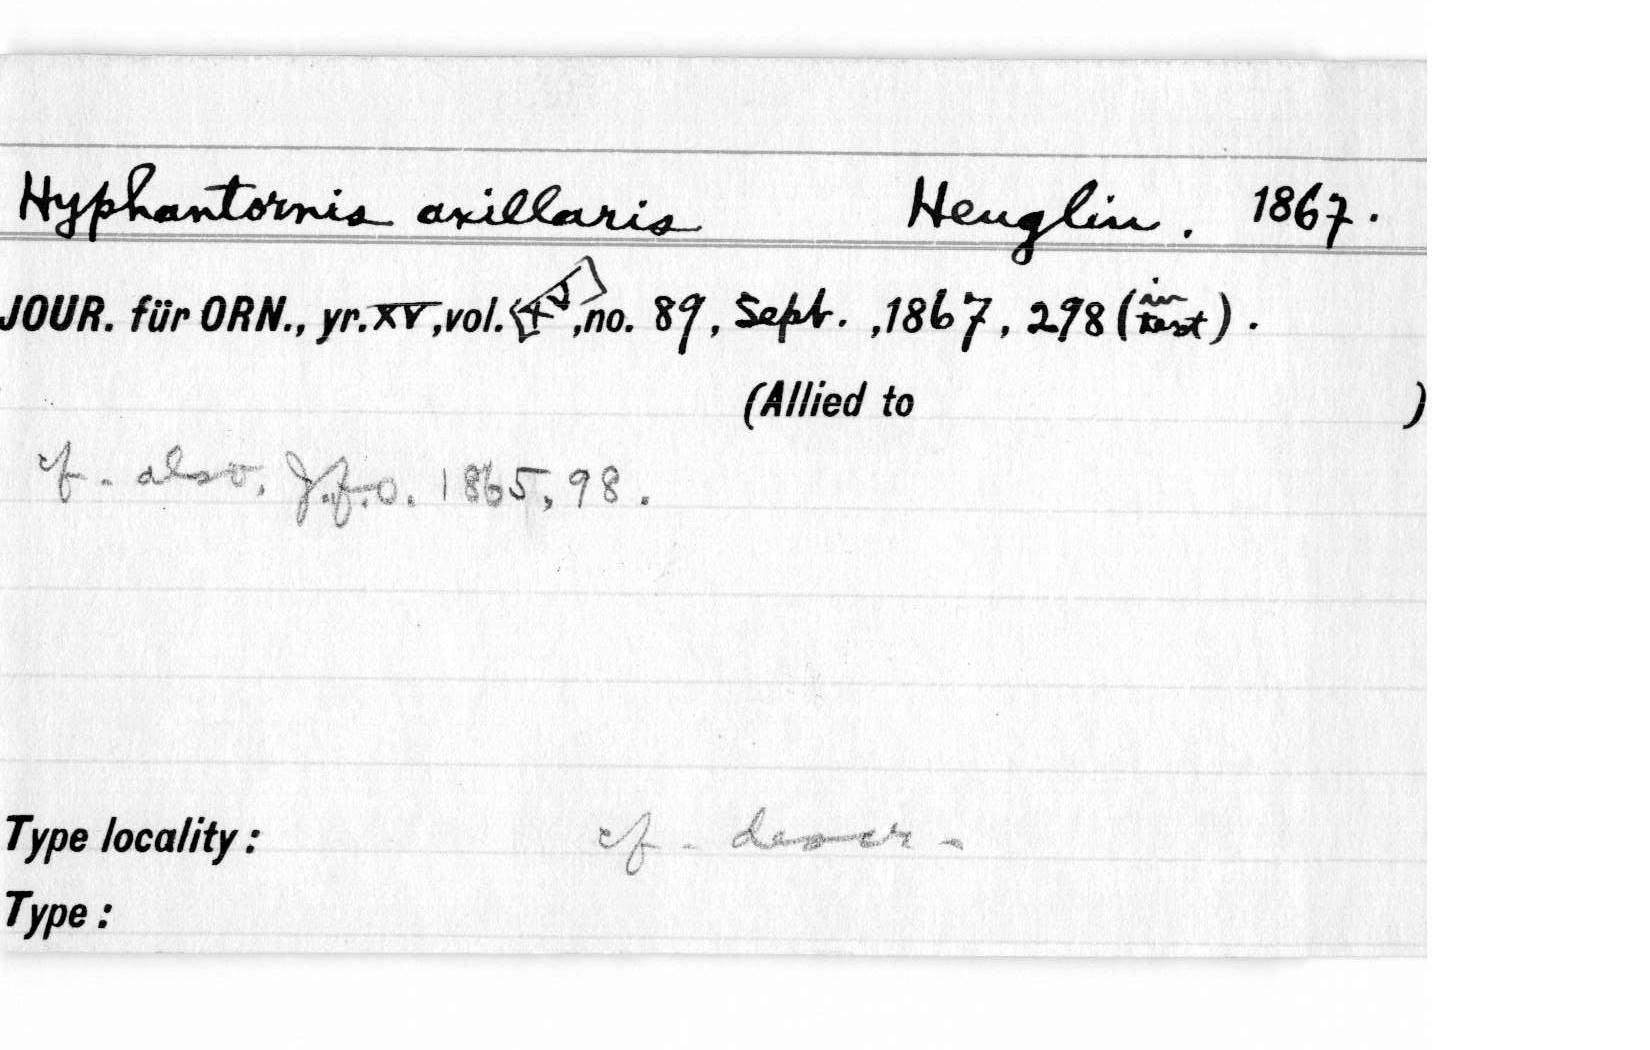 Hyphantornis axillaris Heuglin. 1867.
JOUR. für ORN., yr. XV, vol. [XV], no. 89, Sept., 1867, 298 (in text).
(Allied to )
cf. also, J.f.O. 1865, 98.
Type locality: cf. descr.
Type: